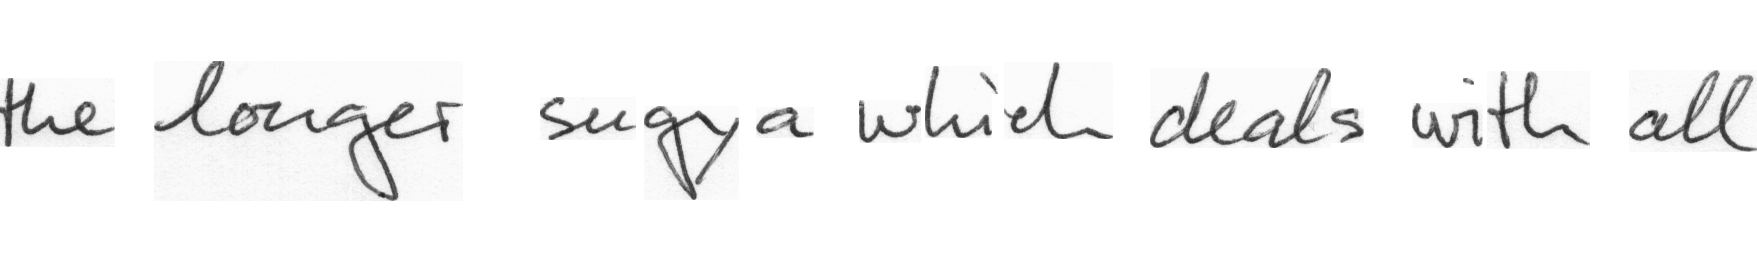 the longer sugya which deals with all